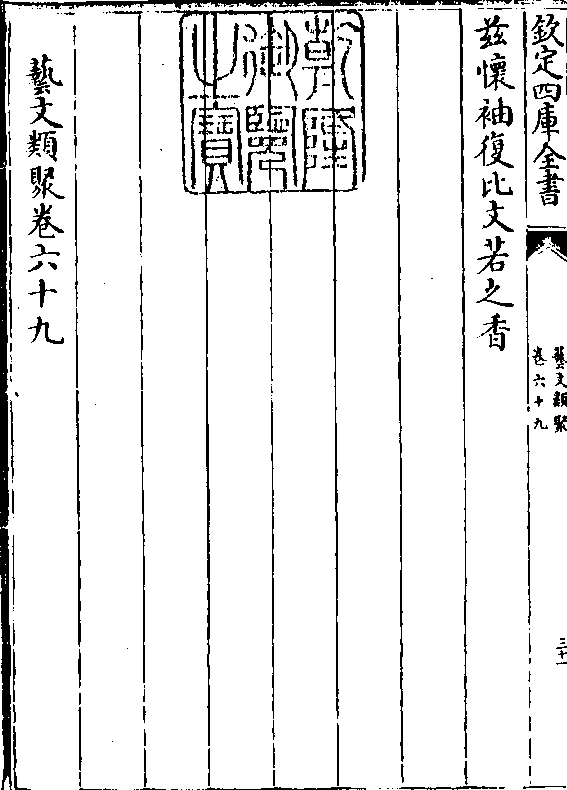 欽定四庫全書
藝文類聚
卷六十九
三十一
茲懷袖復比文若之香
乾隆御覽之寶
藝文類聚卷六十九